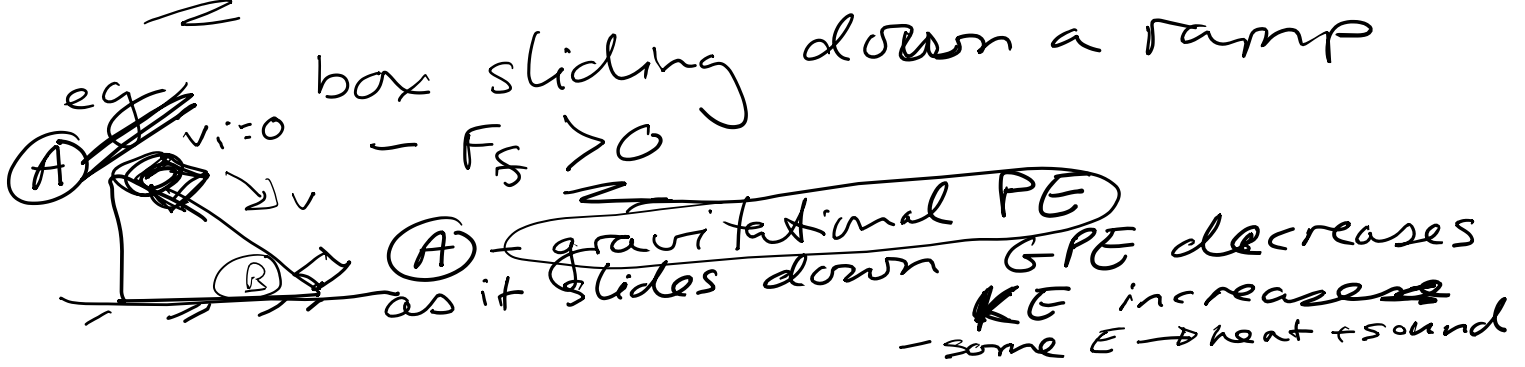 eg box sliding down a ramp
- Ff > 0
A vi = 0
v
A - gravitational PE
as it slides down GPE decreases
B
KE increases
- some E → heat + sound